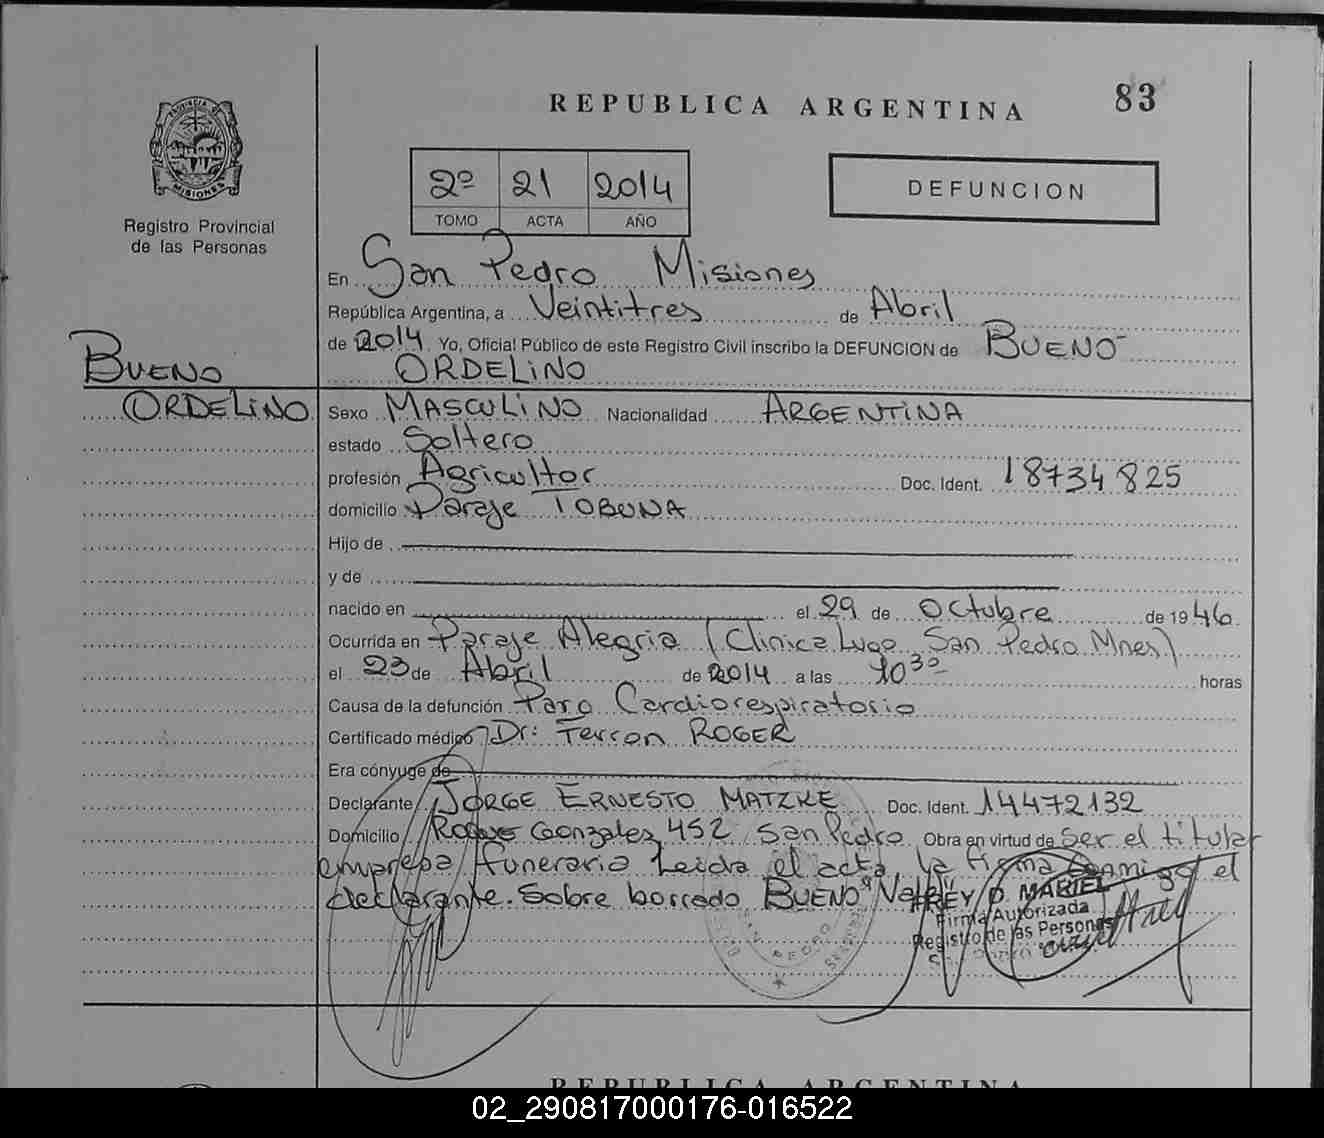 REPUBLICA ARGENTINA
83
PROVINCIA DE
MISIONES
Registro Provincial
de las Personas
2º 21 2014
TOMO ACTA AÑO
DEFUNCION
En San Pedro Misiones
República Argentina, a Veintitres de Abril
de 2014 Yo, Oficial Público de este Registro Civil inscribo la DEFUNCION de BUENO
ORDELINO
BUENO
ORDELINO
Sexo MASCULINO Nacionalidad ARGENTINA
estado Soltero
profesión Agricultor Doc. Ident. 18734825
domicilio Paraje TOBUNA
Hijo de
y de
nacido en el 29 de Octubre de 1946
Ocurrida en Paraje Alegria (Clinica Lugo San Pedro Mnes)
el 23 de Abril de 2014 a las 10 30 horas
Causa de la defunción Paro Cardiorespiratorio
Certificado médico Dr: Ferron ROGER
Era cónyuge de
Declarante JORGE ERNESTO MATZKE Doc. Ident. 14472132
Domicilio Roque Gonzales 452 San Pedro Obra en virtud de ser el titular
empresa funeraria Leida el acta la firma conmigo el
declarante. Sobre borrado BUENO" Vale
FREY D. MARIEL
Firma Autorizada
Registro de las Personas
SAN PEDRO
REPUBLICA ARGENTINA
02_290817000176-016522